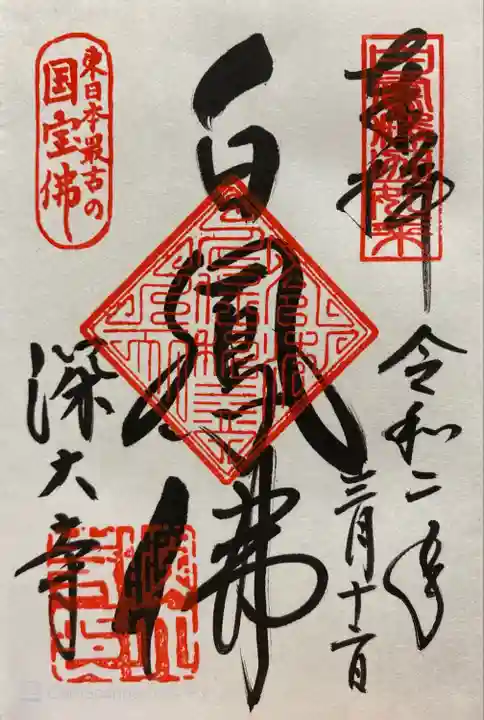 奉拝
令和二年
三月十二日
白鳳佛
東日本最古の
国宝佛
深大寺